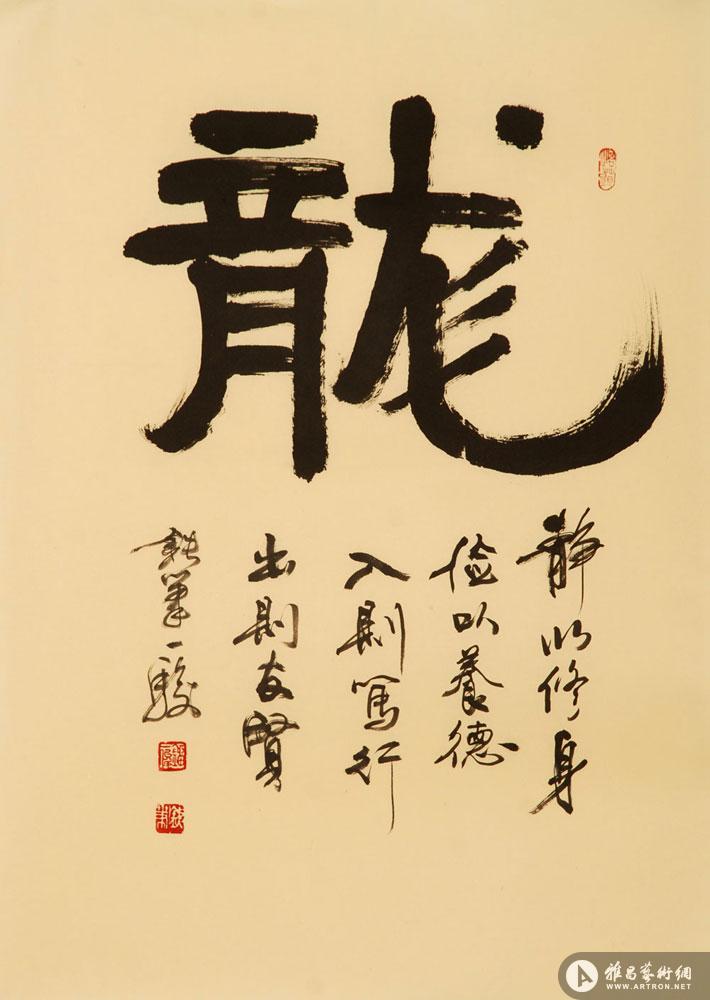 龍
静以修身
俭以養德
入则篤行
出则友賢
鉄筆一駿
雅昌藝術網
WWW.ARTRON.NET